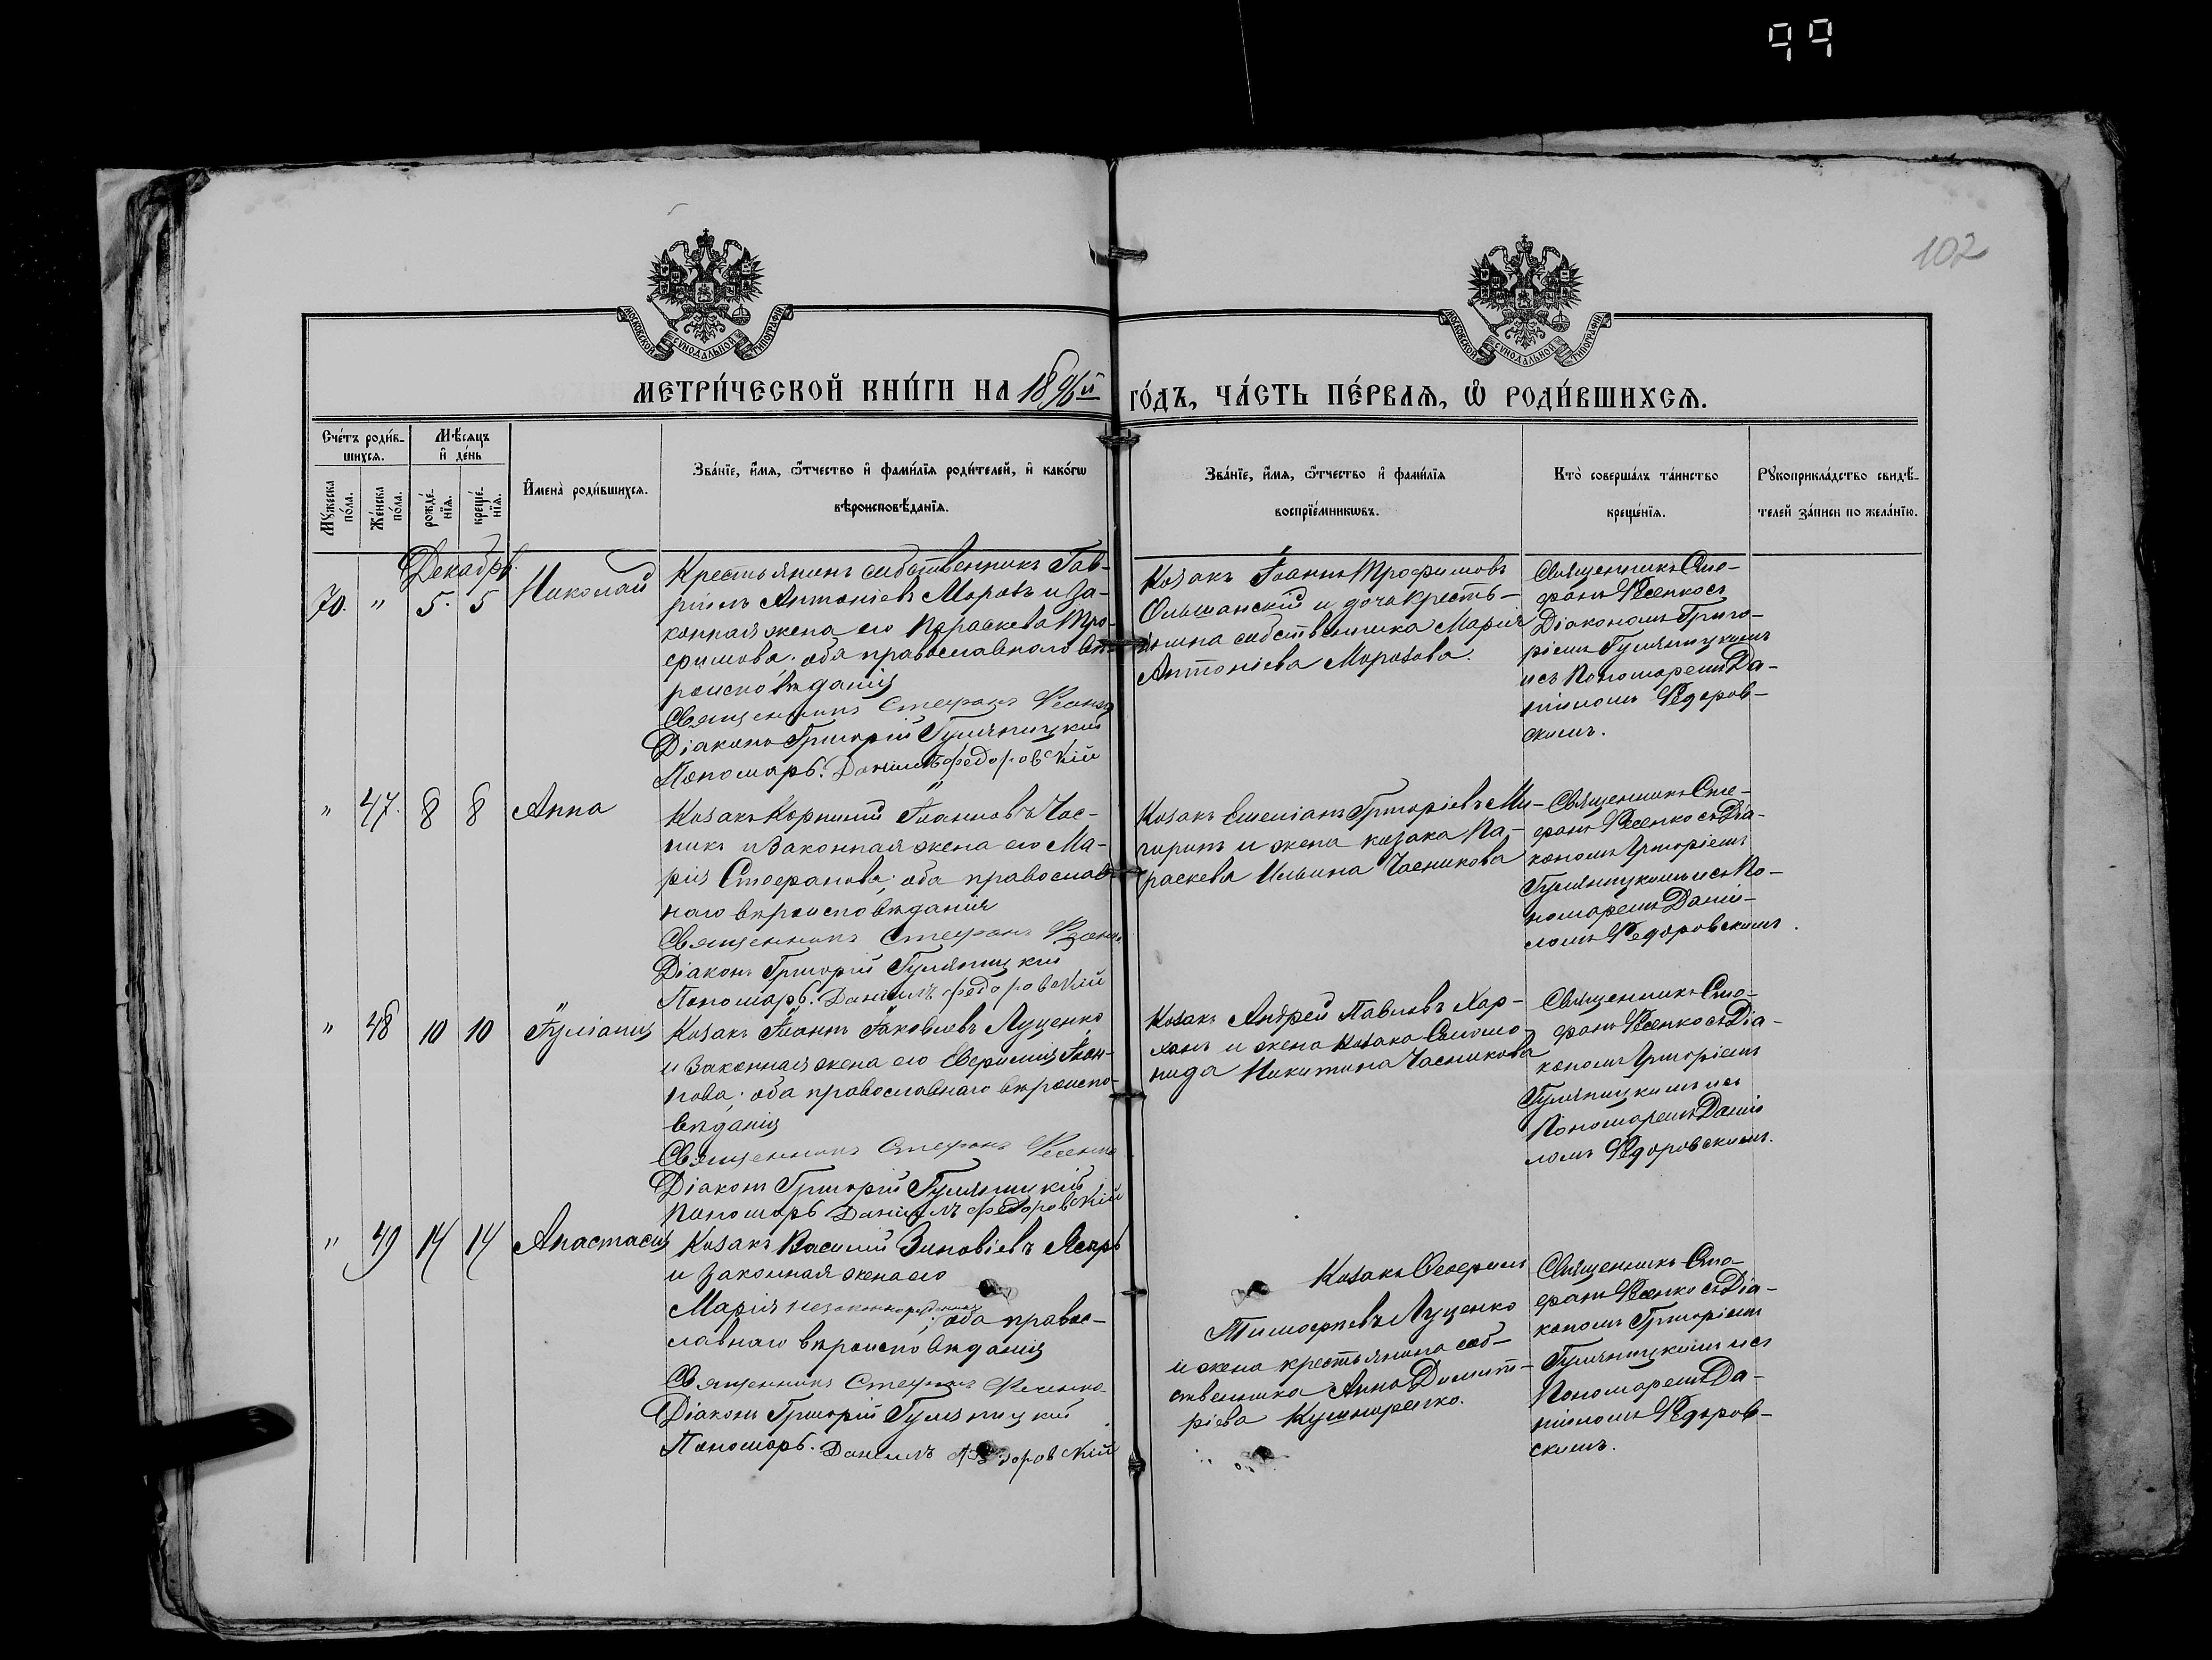 99
102
МОСКОВСКОЙ СѴНОДАЛЬНОЙ ТИПОГРАФІИ
МОСКОВСКОЙ СѴНОДАЛЬНОЙ ТИПОГРАФІИ
МЕТРИ́ЧЕСКОЙ КНИ́ГИ НА 1896й ГО́ДЪ, ЧА́СТЬ ПЕ́РВАѦ, Ѡ РОДИ́ВШИХСѦ.
Сче́тъ роди́в-
шихсѧ.
Мꙋ́жеска по́ла.
Же́нска по́ла.
Мѣ́сѧцъ и҆ де́нь
рожде́-
нїѧ.
креще́-
нїѧ.
И҆мена̀ роди́вшихсѧ.
Зва́нїе, и҆́мѧ, ѻ҆́тчество и҆ фами́лїѧ роди́телей, и҆ како́гѡ
вѣроисповѣ́данїѧ.
Зва́нїе, и҆́мѧ, ѻ҆́тчество и҆ фами́лїѧ
воспрїе́мникѡвъ.
Кто̀ соверша́лъ та́инство
креще́нїѧ.
Рꙋкоприкла́дство свидѣ́-
телей за́писи по жела́нїю.
Декабрь
70. " 5. 5 Николай
Крестьянинъ собственникъ Гав-
ріилъ Антоніевъ Морозъ и за-
конная жена его Параскева Тро-
фимова; оба православного вѣ-
роисповѣданія
Священникъ Стефанъ Фесенко
Діаконъ Григорій Гуляницкій
Пономарь: Даніилъ Федоровскій
Козакъ Іоаннъ Трофимовъ
Ольшанскій и дочь кресть-
янина собственника Марія
Антоніева Морозова.
Священникъ Сте-
фанъ Фесенко съ
Діакономъ Григо-
ріемъ Гуляницкимъ
и съ Пономаремъ Да-
ніиломъ Федоров-
скимъ.
" 47. 8 8 Анна
Козакъ Корнилій Іоанновъ Час-
никъ и законная жена его Ма-
рія Стефанова; оба православ-
наго вѣроисповѣданія
Священникъ Стефанъ Фесенко
Діаконъ Григорій Гуляницкій
Пономарь. Даніилъ Федоровскій
Козакъ Емеліанъ Григоріевъ Ми-
гиринъ и жена козака Па-
раскева Ильина Часникова
Священникъ Сте-
фанъ Фесенко съ Діа-
кономъ Григоріемъ
Гуляницкимъ и съ По-
номаремъ Даніи-
ломъ Федоровскимъ.
" 48 10 10 Іуліанія
Козакъ Іоаннъ Іаковлевъ Луценко
и законная жена его Евфимія Іоан-
нова; оба православнаго вѣроиспо-
вѣданія
Священникъ Стефанъ Фесенко
Діаконъ Григорій Гуляницкій
Пономарь Даніилъ Федоровскій
Козакъ Андрей Павловъ Хар-
ханъ и жена козака Соломо-
нида Никитина Часникова
Священникъ Сте-
фанъ Фесенко съ Діа-
кономъ Григоріемъ
Гуляницкимъ и съ
Пономаремъ Даніи
ломъ Федоровскимъ.
" 49 14 14 Анастасія
Козакъ Василій Зиновіевъ
и законная жена его
Марія незаконнорожденная; оба правос-
лавнаго вѣроисповѣданія
Священникъ Стефанъ Фесенко
Діаконъ Григорій Гуляницкій
Пономарь. Даніилъ Федоровскій
Козакъ
Тимофеевъ Луценко
и жена крестьянина соб-
ственника Анна Димит-
ріева Кушнаренко.
Священникъ Сте
фанъ Фесенко съ Діа-
кономъ Григоріемъ
Гуляницкимъ и съ
Пономаремъ Да-
ніиломъ Федоров-
скимъ.